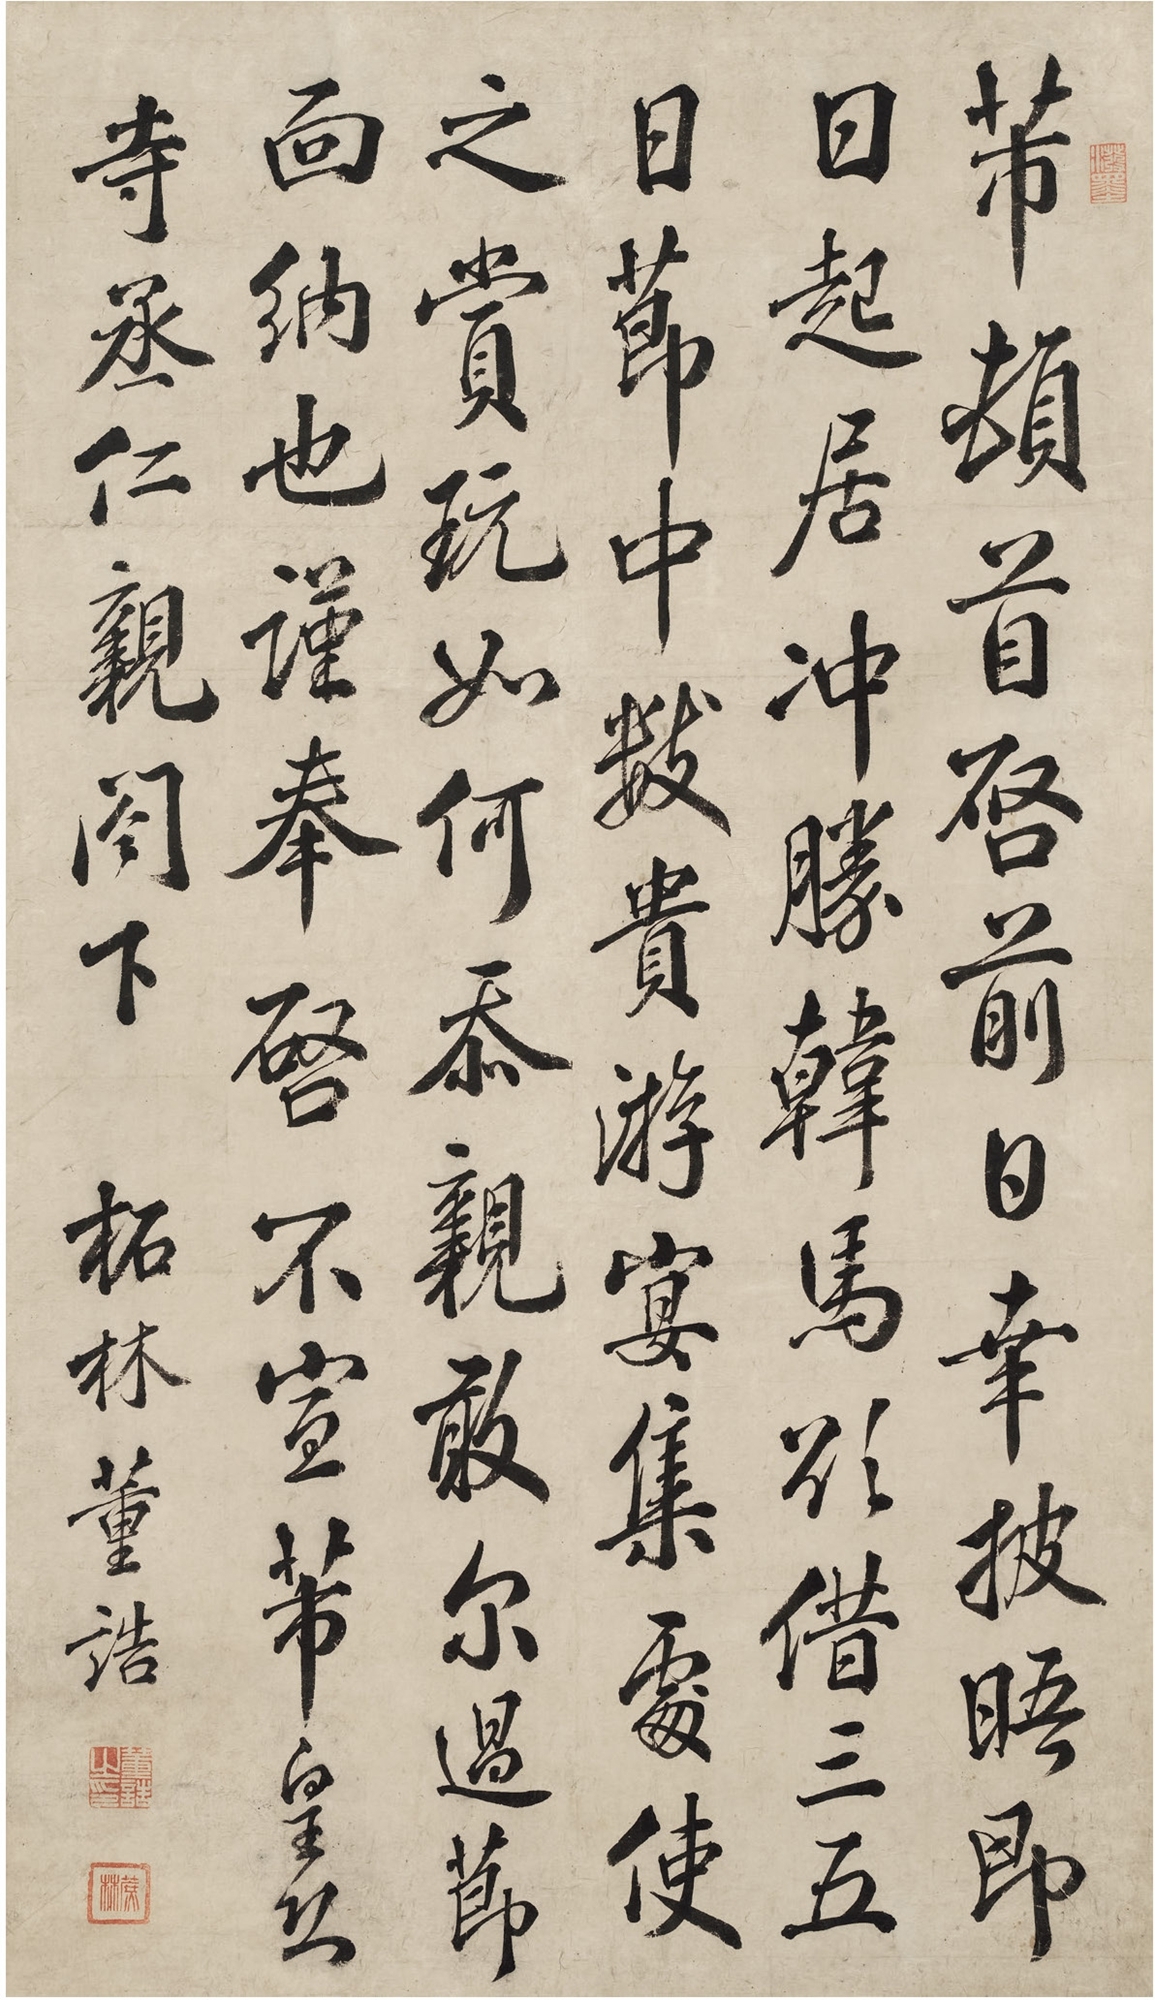 芾頓首啓前日幸披晤即
日起居冲勝韓馬欲借三五
日節中數貴游宴集處使
之賞玩如何忝親敢尔過節
面納也謹奉啓不宣芾皇恐
寺丞仁親閤下
柘林董誥
董誥之印
蔗林